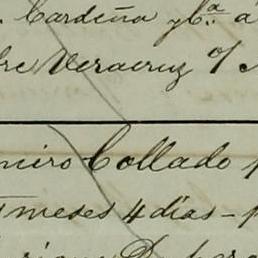 Cardeña y Cª á
re Veracruz o/
miro Collado p
meses 4 dias - p